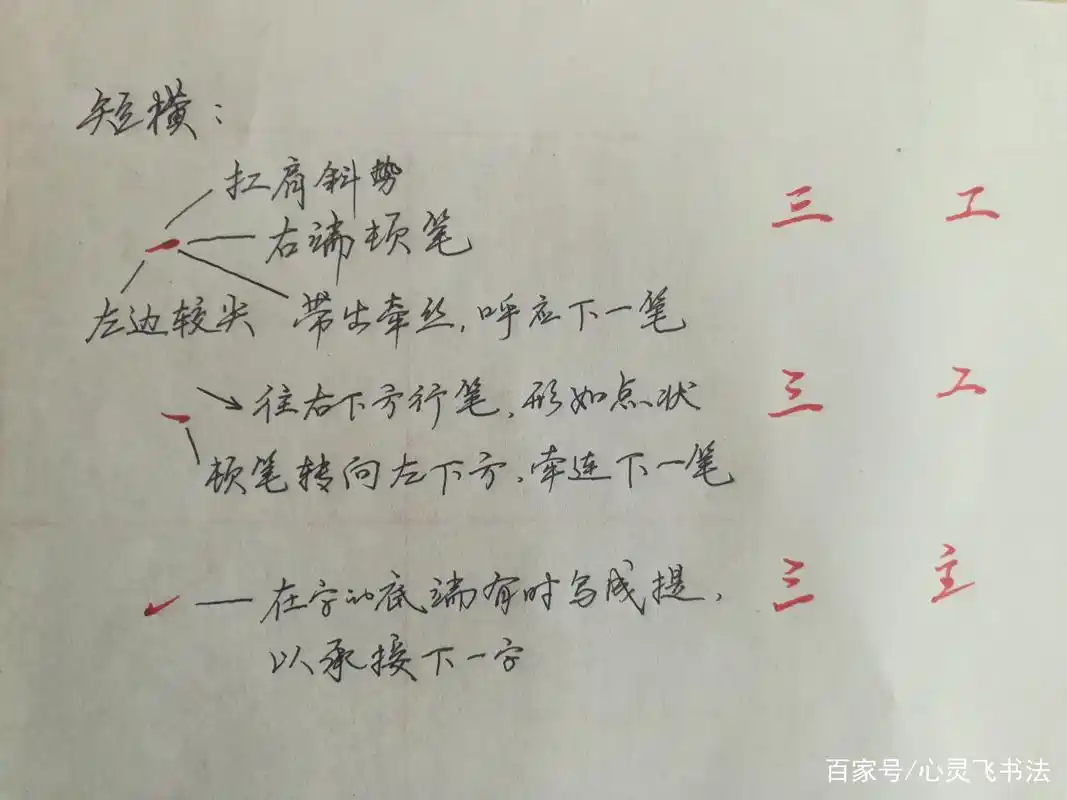 短横：
扛肩斜势
右端顿笔
左边较尖 带出牵丝，呼应下一笔
三 工
往右下方行笔，形如点状
顿笔转向左下方，牵连下一笔
三 工
在字的底端有时写成提，
以承接下一字
三 主
百家号/心灵飞书法